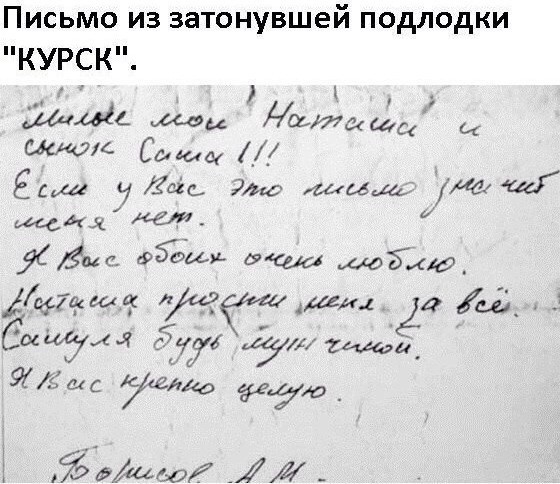 Письмо из затонувшей подлодки
"КУРСК".
Милые мои Наташа и
сынок Саша!!!
Если у Вас это письмо значит
меня нет.
Я Вас обоих очень люблю.
Наташа прости меня за всё.
Сашуля будь мужчиной.
Я Вас крепко целую.
Борисов А.М.